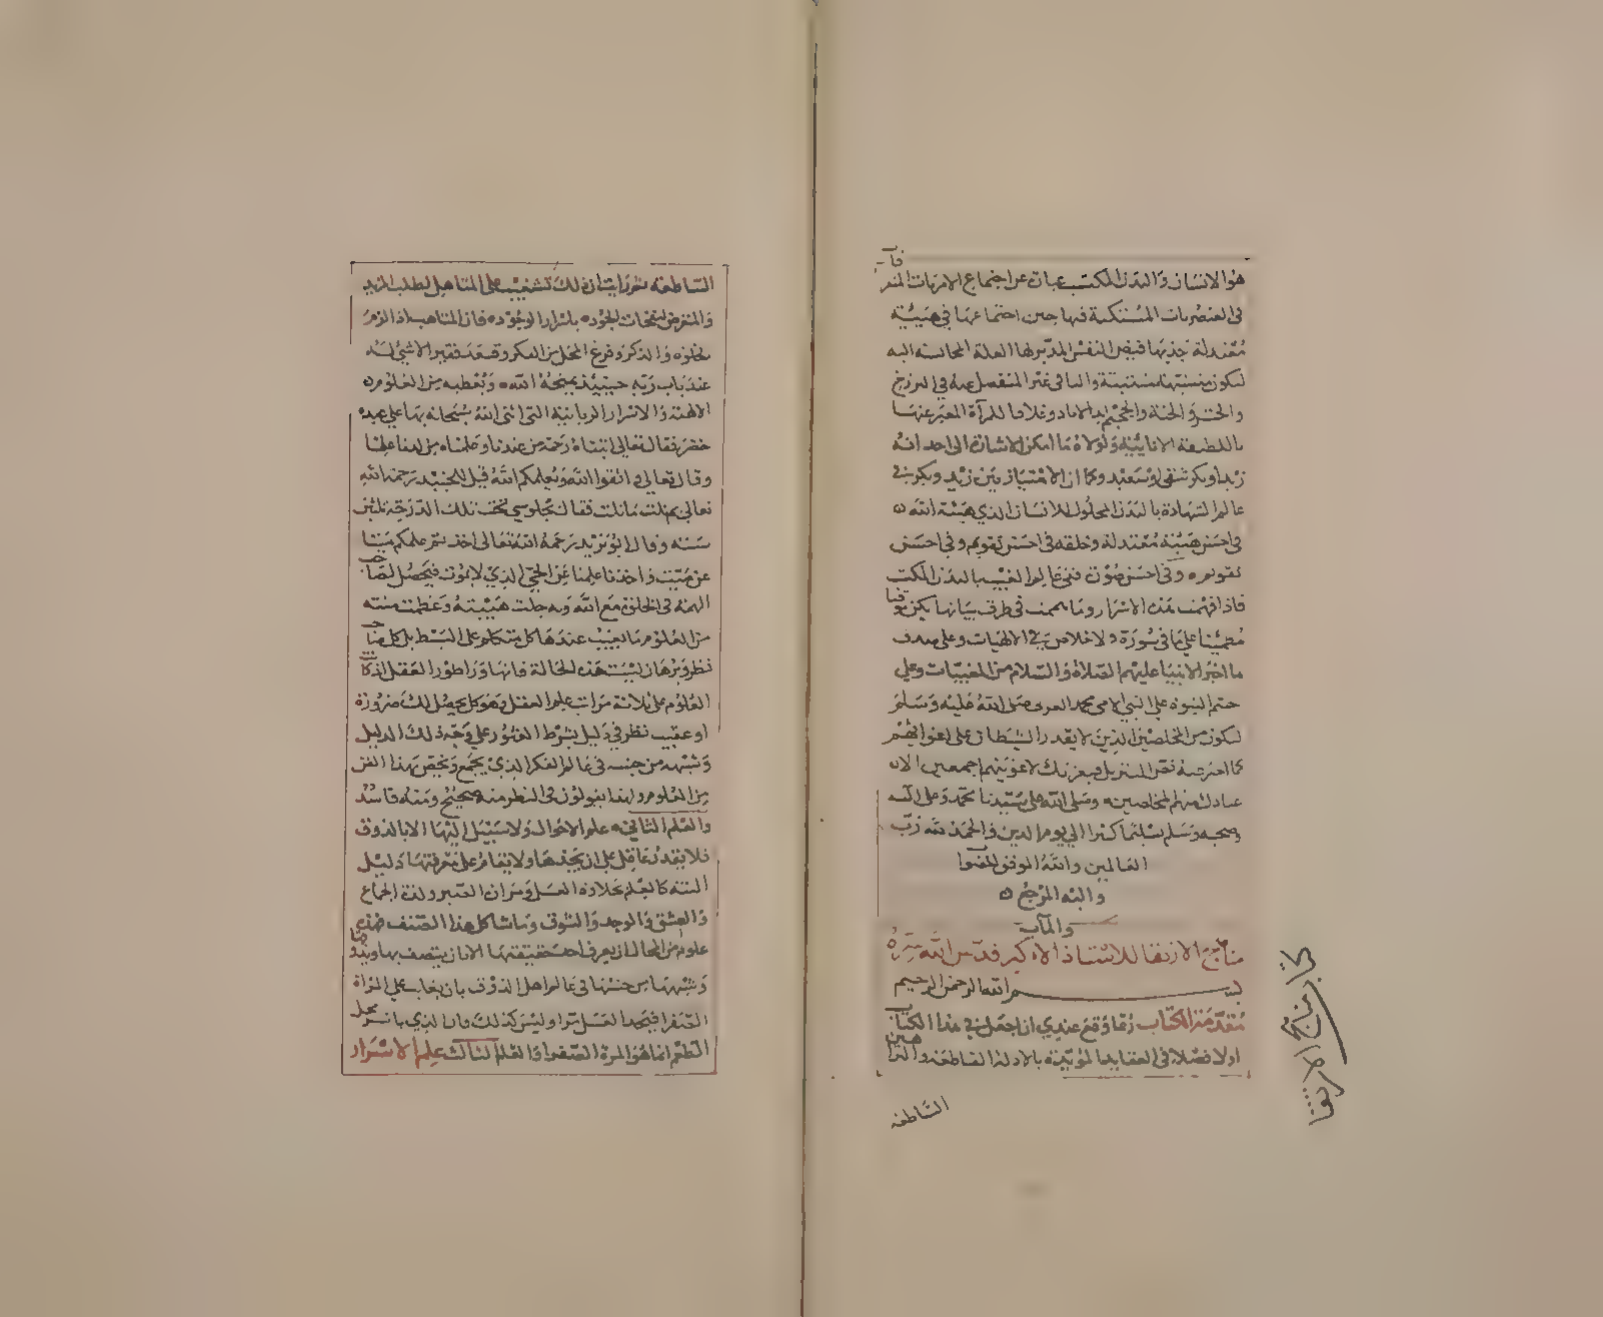 هو الانسان والبدن المكتسب عبارة عن اجتماع الامريات
في العنصريات فيها حين اجتماعها في هيئة
معتدلة النفس المدبر لها اليه
لتكون غير المنفصل عنه في البرزخ
والحشر والجنة والجحيم ابد الاباد وغلافا للمرآة المعبر عنها
باللطيفة الانسانية ولولاه ما امكن الاشارة الى احد انه
زيد او بكر شقي او سعيد وكما ان الامتياز بين زيد وبكر في
عالم الشهادة بالبدن المحلول للانسان الذي هيئه الله
في احسن هيئة معتدلة وخلقه في احسن تقويم وفي احسن
تقويم وفي احسن صورة ففي عالم الغيب بالبدن المكتسب
فاذا فهمت هذه الاسرار وما في طرف بيانها
مطمئنا على ما في سورة الاخلاص في الالهيات وعلى صدق
ما اخبر الانبيا عليهم الصلاة والسلام من المغيبات وعلى
ختم النبوة على النبي الامي محمد العربي صلى الله عليه وسلم
لتكون من المخلصين الذين لا يقدر الشيطان على اغوائهم
كما اخبر عنه نص التنزيل فبعزتك لاغوينهم اجمعين الا
عبادك منهم المخلصين وصلى الله على سيدنا محمد وعلى اله
وصحبه وسلم تسليما كثيرا الى يوم الدين والحمد لله رب
العالمين والله الموفق للصواب
واليه المرجع
والمآب
مناهج الارتقا للاستاذ الاكبر قدس الله سره
بسم الله الرحمن الرحيم
مقدمة الكتاب ربما وقع عندي ان اجعل في هذا الكتاب
اولا فصلا في العقايد المؤيدة بالادلة القاطعة والبراهين
الساطعة
كتاب مناهج الارتقا
الساطعة ثم رايت ان ذلك تشغيب على المتاهل لطلب المزيد
والمتعرض لنفحات الجود باسرار الوجود فان المتاهب اذا لزم
الخلوة والذكر وفرغ المحل من الفكر وقعد فقيرا لا شيء له
عند باب ربه حينئذ يمنحه الله ويعطيه من العلوم
الالهية والاسرار الربانية التي اثنى الله سبحانه بها على عبده
خضر فقال تعالى اتيناه رحمة من عندنا وعلمناه من لدنا علما
وقال تعالى واتقوا الله ويعلمكم الله قيل للجنيد رحمه الله
تعالى بم نلت ما نلت فقال بجلوسي تحت تلك الدرجة ثلثين
سنة وقال ابو يزيد رحمه الله تعالى اخذتم علمكم ميتا
عن ميت واخذنا علمنا عن الحي الذي لا يموت فيحصل لصاحب
الهمة في الخلوة مع الله وبه جلت هيبته وعظمت منته
من العلوم ما يغيب عندها كل متكلم على البسيط بل كل صاحب
نظر وبرهان ليست هذه الحالة فانها وراء طور العقل اذ كانت
العلوم على ثلاثة مراتب علم العقل وهو كل ما يحصل لك ضرورة
او عقيب نظر في دليل بشرط العثور على وجه ذلك الدليل
وشبهه من جنسه في عالم الفكر الذي يجمع ويختص بهذا الفن
من العلوم ولهذا يقولون في النظر منه صحيح ومنه فاسد
والعلم الثاني علم الاحوال ولا سبيل اليها الا بالذوق
فلا يقدر عاقل على ان يحدها ولا يقام على معرفتها دليل
البتة كالعلم بحلاوة العسل ومرارة الصبر ولذة الجماع
والعشق والوجد والشوق وما شاكل هذا الصنف فهذه
علوم من المحال ان يعرف احد حقيقتها الا بان يتصف بها ويذوقها
وشبهها من جنسها في عالم اهل الذوق بان يغلب على
الصفرا فيجد العسل مرا وليس كذلك فان الذي باشر محل
الطعم انما هو المرة الصفرا والعلم الثالث علم الاسرار